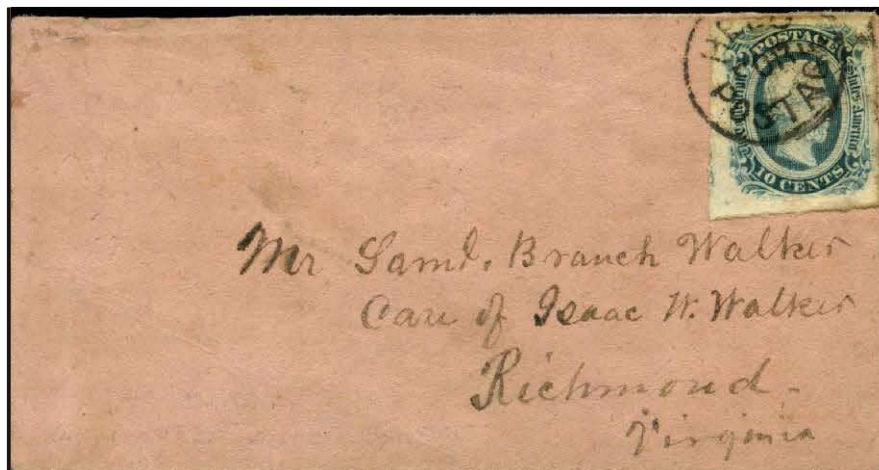 POSTAGE
States America
10 CENTS
Mr Saml. Branch Walker
Care of Isaac W. Walker
Richmond -
Virginia